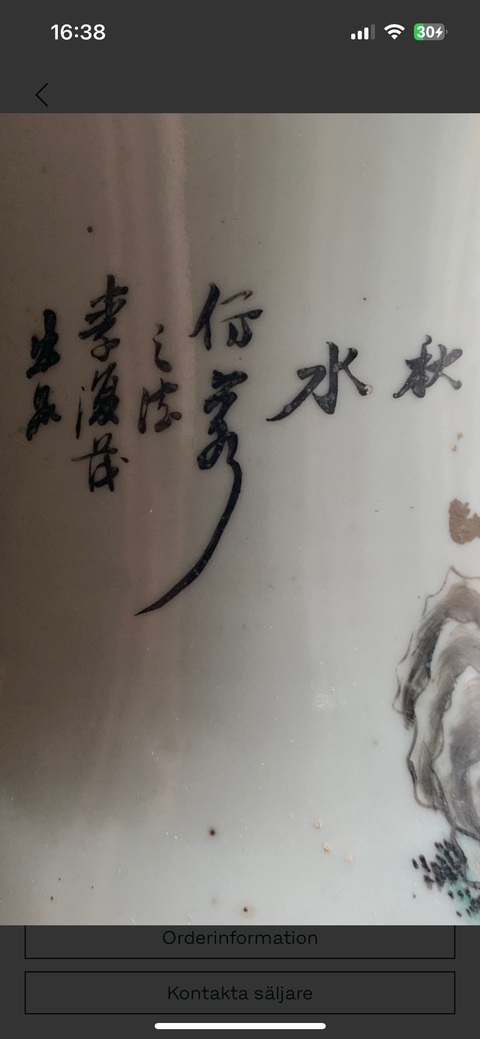 16:38
30
秋水
仿
之法
李復茂
出品
Orderinformation
Kontakta säljare